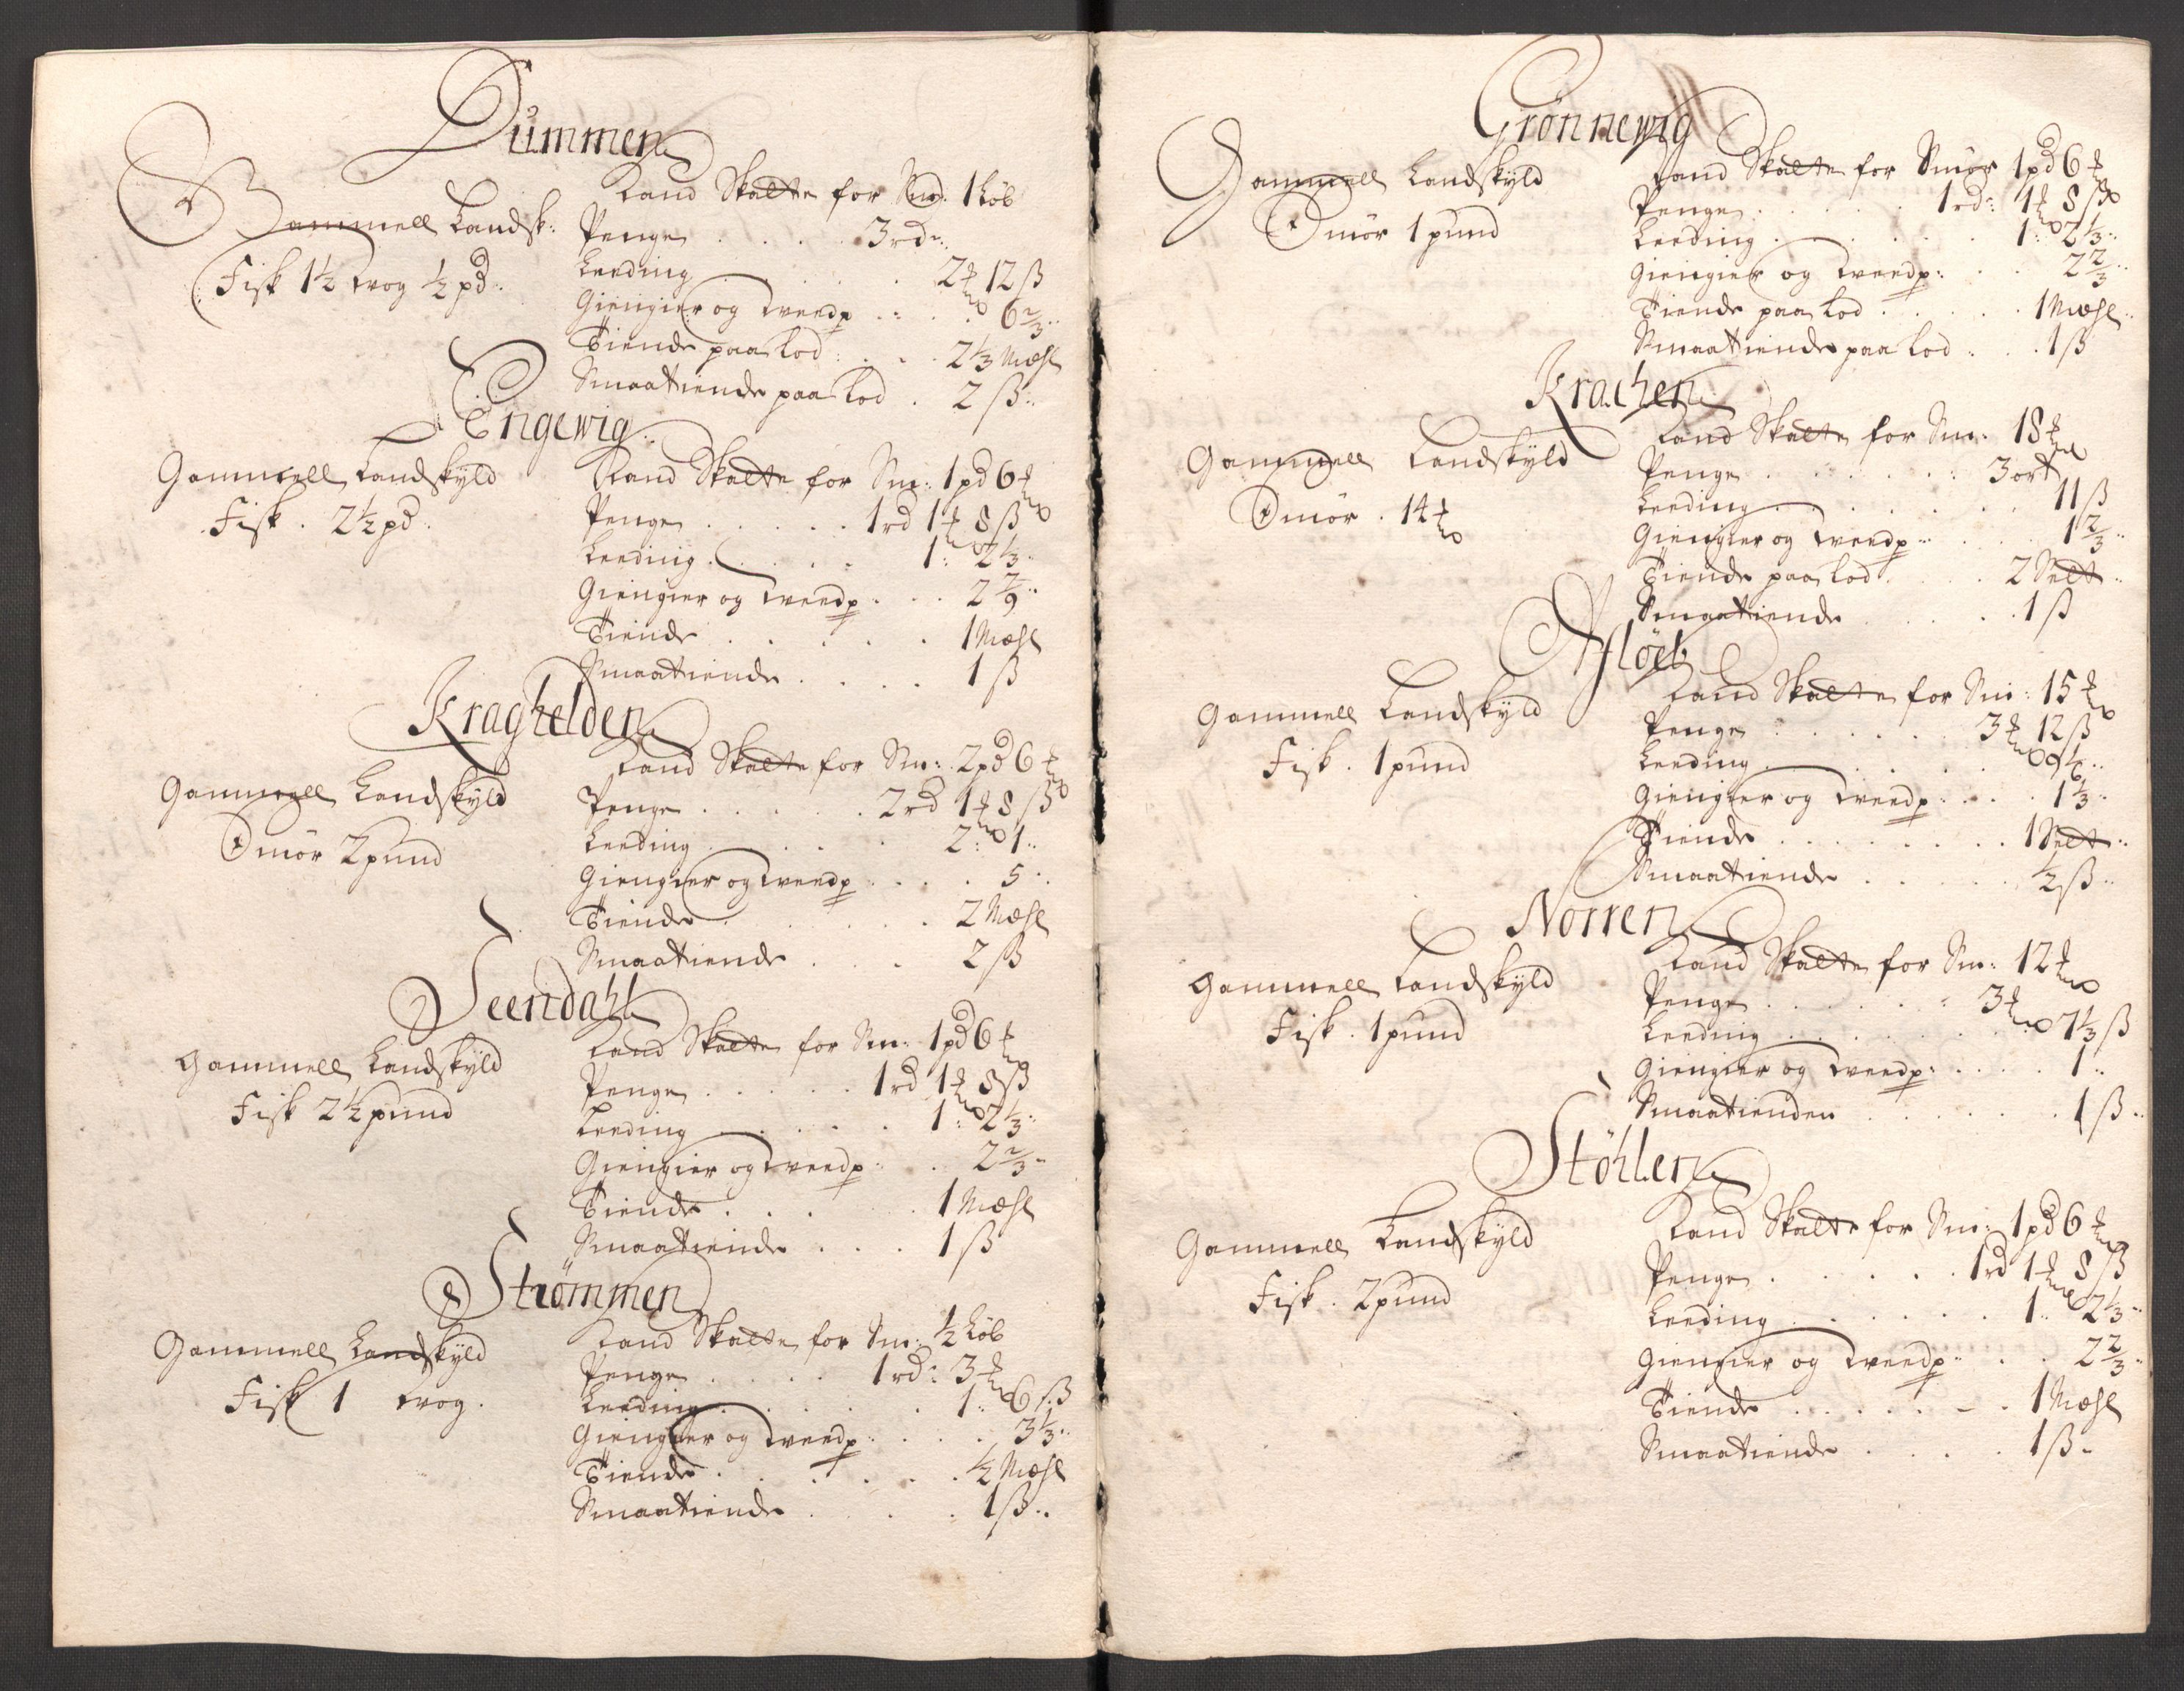 Dummen
Gammell Landsk:
Fisk 1½ trog ½ pd:
Land Skatte for Smø: 1 Løb
Penge . . . . 3 rd:
Leeding . . . 2 ₥ 12 ß
Giengier og tvendp . . 6 2/3
Tiende paa Lod . . . 2 1/3 Mæhl
Smaatiende paa Lod . 2 ß
Engewig
Gammell Landskyld
Fisk . 2½ pd.
Land Skatte for Sm: 1 pd 6 ₥
Penge . . . . . 1 rd 1 ₥ 8 ß
Leeding . . . . 1: 2 1/3
Giengier og tvendp . . . 2 7/9
Tiende . . . . . 1 Mæhl
Smaatiende . . . . 1 ß
Kraghelden
Gammell Landskyld
Smør 2 pund
Land Skatte for Sm: 2 pd 6 ₥
Penge . . . . . 2 rd 1 ₥ 8 ß
Leeding . . . . 2: 1
Giengier og tvendp . . . . 5
Tiende . . . . . 2 Mæhl
Smaatiende . . . 2 ß
Seendahl
Gammell Landskyld
Fisk 2½ pund
Land Skatte for Sm: 1 pd 6 ₥
Penge . . . . . 1 rd 1 ₥ 8 ß
Leeding . . . . 1: 2 1/3
Giengier og tvendp . . 2 2/3
Tiende . . . . 1 Mæhl
Smaatiende . . . 1 ß
Strømmen
Gammell Landskyld
Fisk 1 trog.
Land Skatte for Sm: ½ Løb
Penge . . . . 1 rd: 3 ₥
Leeding . . . . . 1: 6 ß
Giengier og tvendp . . . . 3 1/3
Tiende . . . . . ½ Mæhl
Smaatiende . . . . 1 ß
Grønnewig
Gammell Landskyld
Smør 1 pund
Land Skatte for Smør 1 pd 6 ₥
Penge . . . . . 1 rd: 1 ₥ 8 ß
Leeding . . . . . 1: 2 1/3
Giengier og tvendp: . . 2 2/3
Tiende paa Lod . . . . . 1 Mæhl
Smaatiende paa Lod . . . 1 ß
Krachen
Gammell Landskyld
Smør . 14 ₥
Land Skatte for Sm: 18 ₥
Penge . . . . . . 3 ort
Leeding . . . . . . 11 ß
Giengier og tvendp . . . . 1 2/3
Tiende paa Lod . . . . 2 Selt
Smaatiende . . . . . 1 ß
Gammell Landskyld
Fisk . 1 pund
Land Skatte for Sm: 15 ₥
Penge . . . . . . 3 ₥ 12 ß
Leeding . . . . . . 9 1/6
Giengier og tvendp . . . . 1 1/3
Tiende . . . . . . . . 1 Selt
Smaatiende . . . . . ½ ß
Norren
Gammell Landskyld
Fisk . 1 pund
Land Skatte for Sm: 12 ₥
Penge . . . . . . 3 ₥
Leeding . . . . . . 7 1/3 ß
Giengier og tvendp . . . . 1
Smaatienden . . . . . . 1 ß
Støhlen
Gammell Landskyld
Fisk . 2 pund
Land Skatte for Sm: 1 pd 6 ₥
Penge . . . . . 1 rd 1 ₥ 8 ß
Leeding . . . . . . 1: 2 1/3
Giengier og tvendp . . . 2 2/3
Tiende . . . . . . 1 Mæhl
Smaatiende . . . . 1 ß